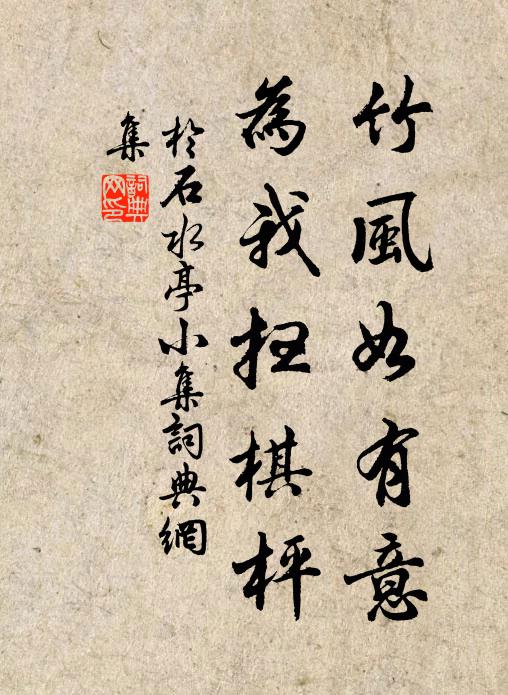 竹風如有意
為我扫棋枰
於石水亭小集詞典網
集
詞典
网印